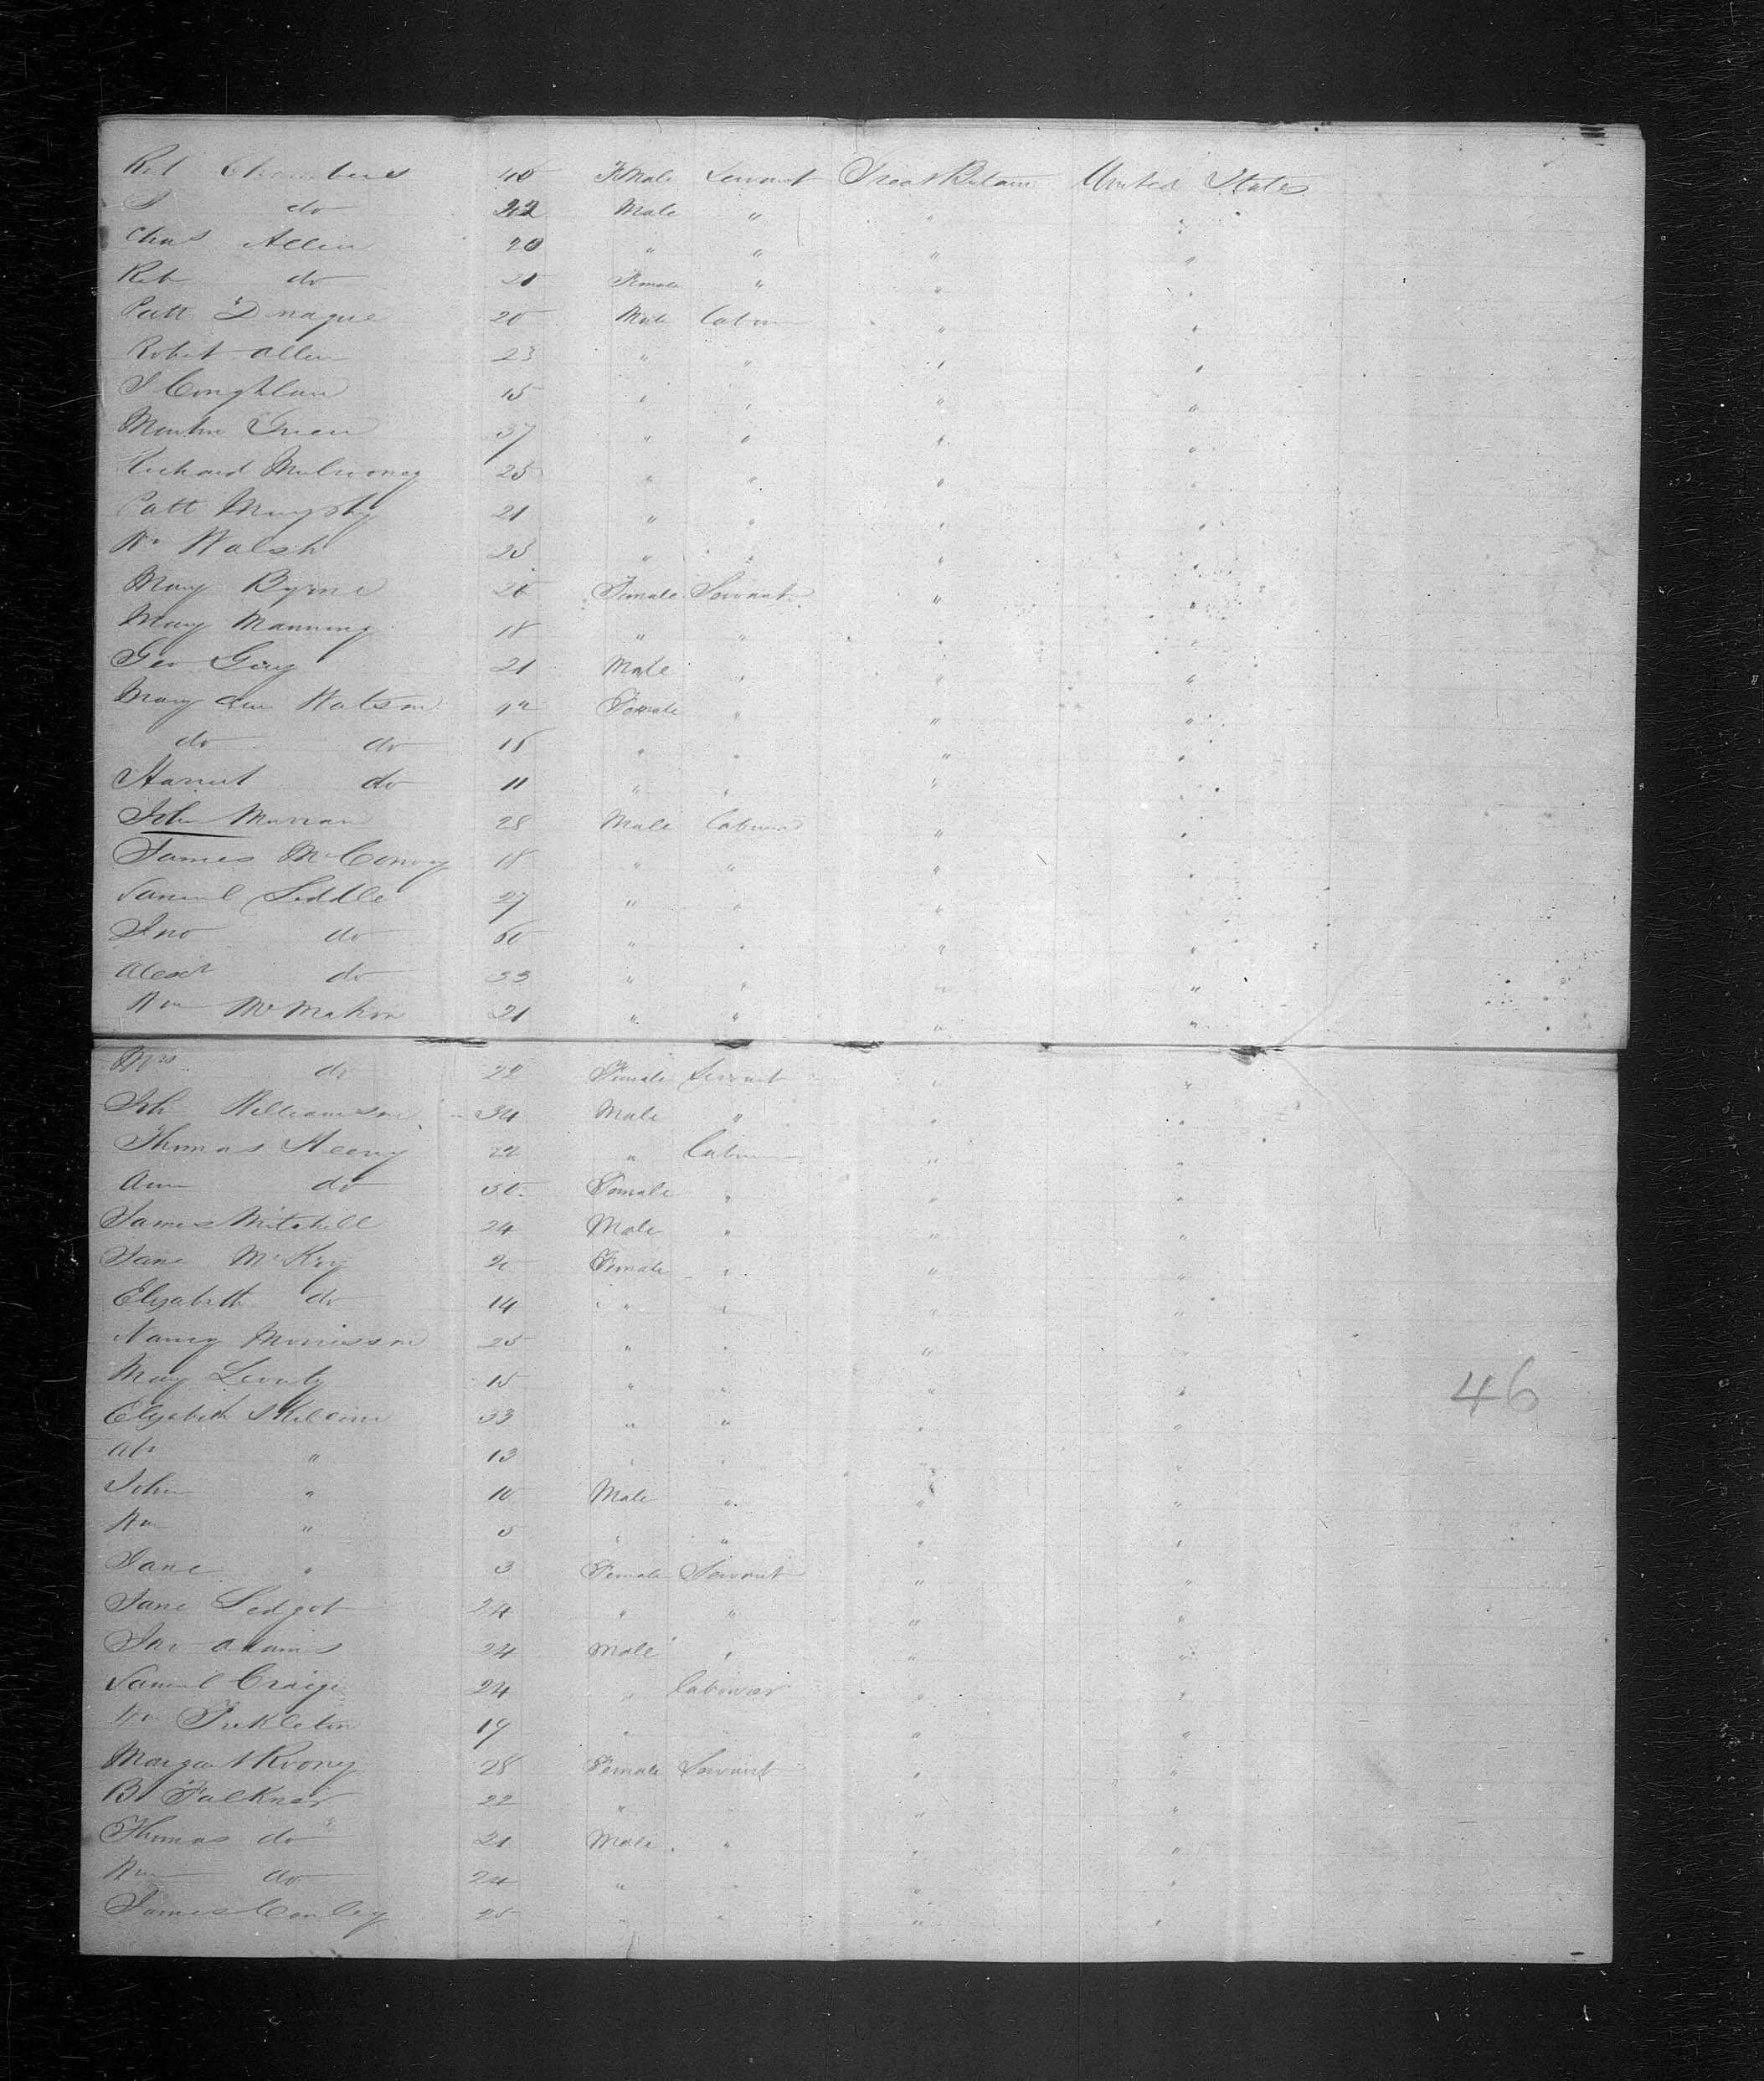 Reb Chambers 40 Female Servant Great Britain United States
S do 22 Male " " "
Chas Allen 20 " " " "
Reb do 21 Female " " "
Patt 20 Male Labour " "
Robert Allen 23 " " " "
J Coughlan 15 " " " "
Martin Green 37 " " " "
Richard Mulrooney 25 " " " "
Patt Murphy 21 " " " "
Wm Walsh 25 " " " "
Mary Byrne 20 Female Servant " "
Mary Manning 18 " " " "
Geo Gray 21 Male " " "
Mary Ann Watson Female " " "
do do 15 " " " "
Harriet do 11 " " " "
John Murran 28 Male Labourer " "
James McConvey 18 " " " "
Samuel Liddle 27 " " " "
Jno do 60 " " " "
Alexr do 33 " " " "
Wm McMahon 21 " " " "
Mrs do 22 Female Servant " "
Joh Williamson 34 Male " " "
Thomas Heeny " Labour " "
Ann do 30 Female " " "
James Mitchell 24 Male " " "
Jane McKey Female " " "
Elizabeth do 14 " " " "
Nancy Morrisson 25 " " " "
Mary 15 " " " "
46
Elizabeth 33 " " " "
" 13 " " " "
John " 10 Male " " "
Wm " 5 " " " "
Jane " 3 Female Servant " "
Jane Ledgot 24 " " " "
Jas Adams 24 Male " " "
Samuel Craige 24 " Labourer " "
19 " " "
Margaret Rooney 28 Female Servant " "
B Falkner 22 " " "
Thomas do 21 Male " " "
Wm do 24 " " "
James Conley 25 " " " "